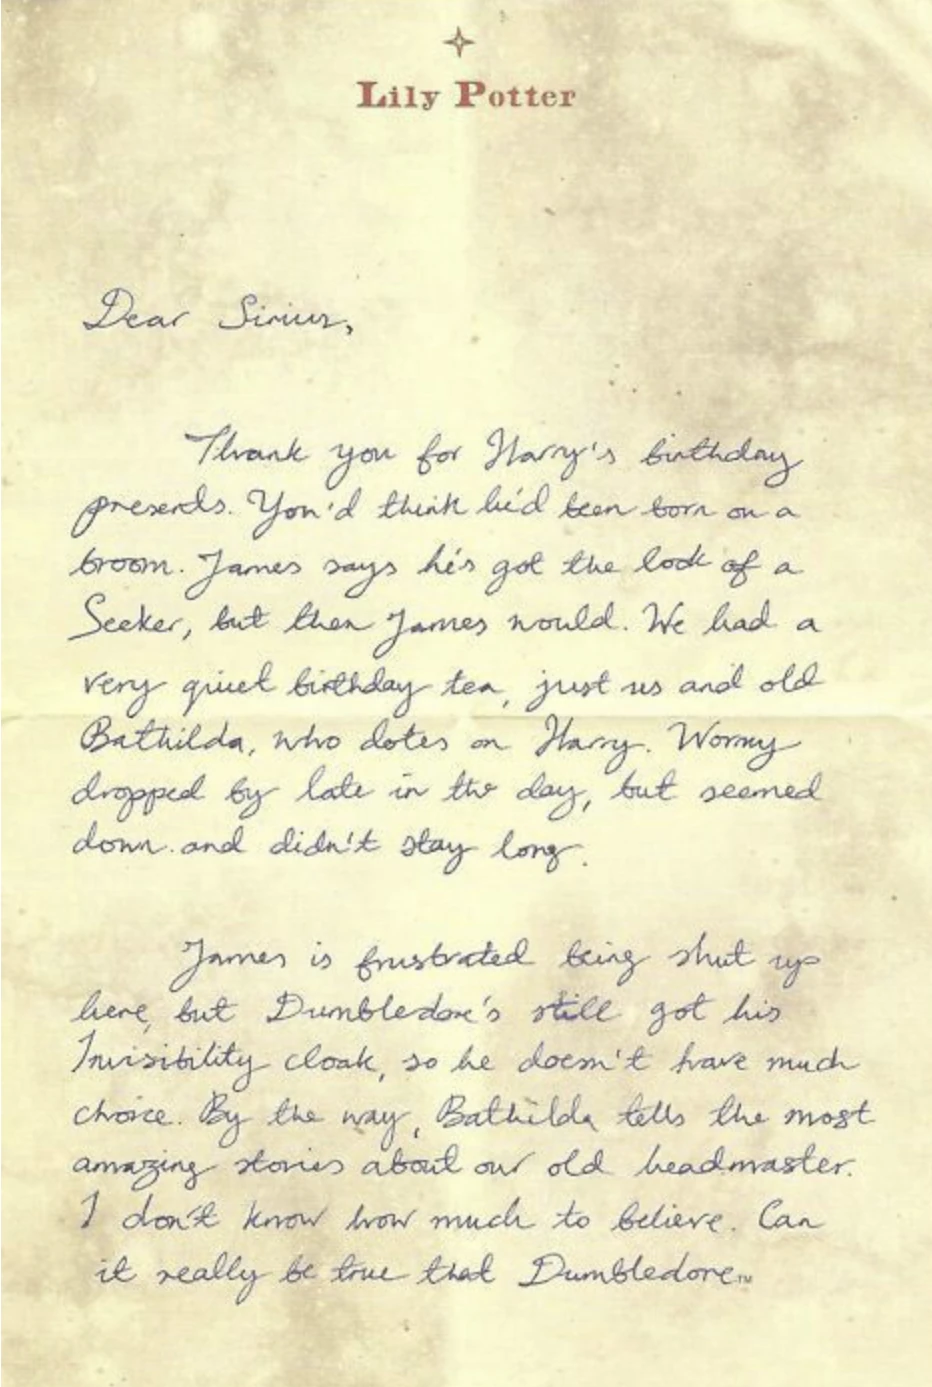 Lily Potter
Dear Sirius,
Thank you for Harry's birthday
presents. You'd think he'd been born on a
broom. James says he's got the look of a
Seeker, but then James would. We had a
very quiet birthday tea, just us and old
Bathilda, who dotes on Harry. Wormy
dropped by late in the day, but seemed
down and didn't stay long.
James is frustrated being shut up
here, but Dumbledore's still got his
Invisibility cloak, so he doesn't have much
choice. By the way, Bathilda tells the most
amazing stories about our old headmaster.
I don't know how much to believe. Can
it really be true that Dumbledore™